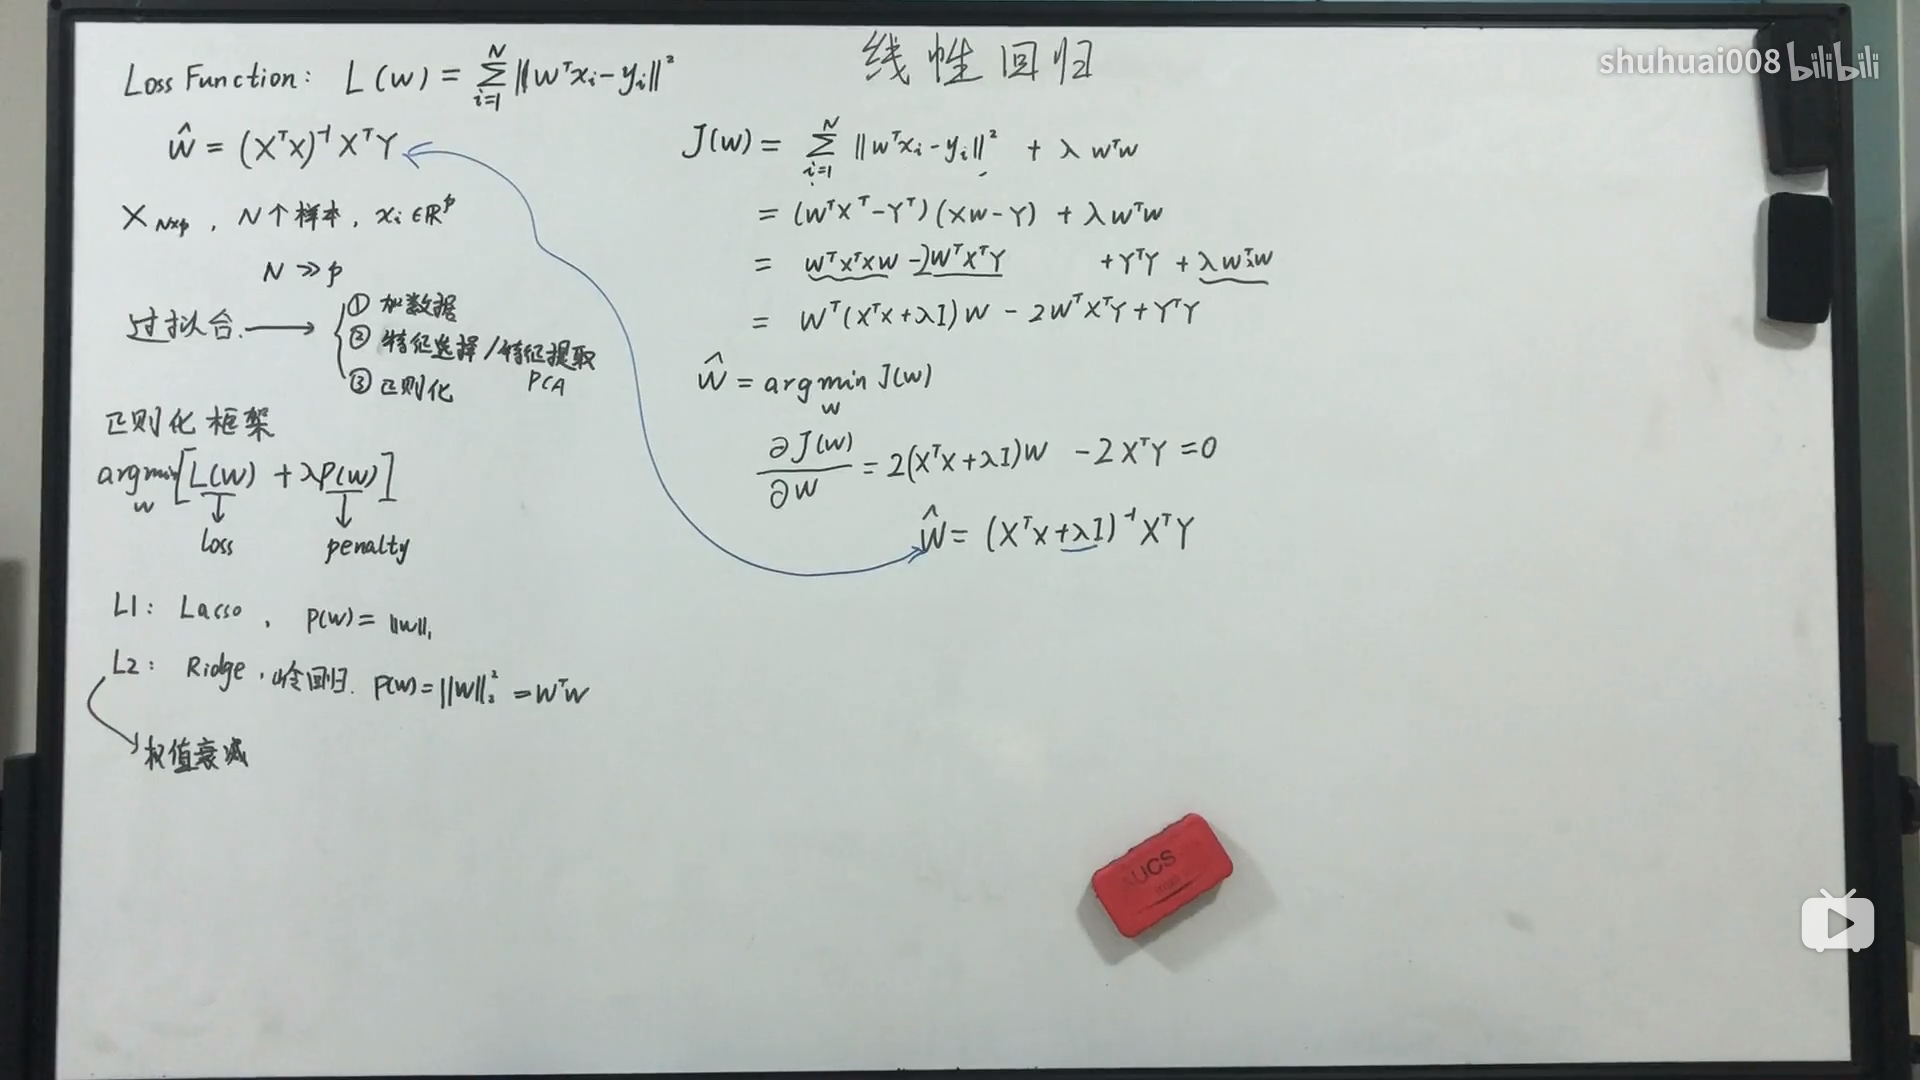 线性回归
shuhuai008 bilibili
Loss Function: L(w) = Σ_{i=1}^{N} ‖wᵀxᵢ - yᵢ‖²
Ŵ = (XᵀX)⁻¹XᵀY
X_{N×p}, N个样本, xᵢ ∈ ℝᵖ
N ≫ p
过拟合. ⟶
① 加数据
② 特征选择/特征提取
PCA
③ 正则化
正则化框架
argmin_w [L(w) + λP(w)]
↓ ↓
loss penalty
L1: Lasso, P(w) = ‖w‖₁
L2: Ridge, 岭回归. P(w) = ‖W‖₂² = WᵀW
权值衰减
J(w) = Σ_{i=1}^{N} ‖wᵀxᵢ - yᵢ‖² + λwᵀw
= (WᵀXᵀ - Yᵀ)(XW - Y) + λWᵀW
= WᵀXᵀXW - 2WᵀXᵀY + YᵀY + λWᵀW
= Wᵀ(XᵀX + λI)W - 2WᵀXᵀY + YᵀY
Ŵ = argmin_w J(w)
∂J(w)/∂W = 2(XᵀX + λI)W - 2XᵀY = 0
Ŵ = (XᵀX + λI)⁻¹XᵀY